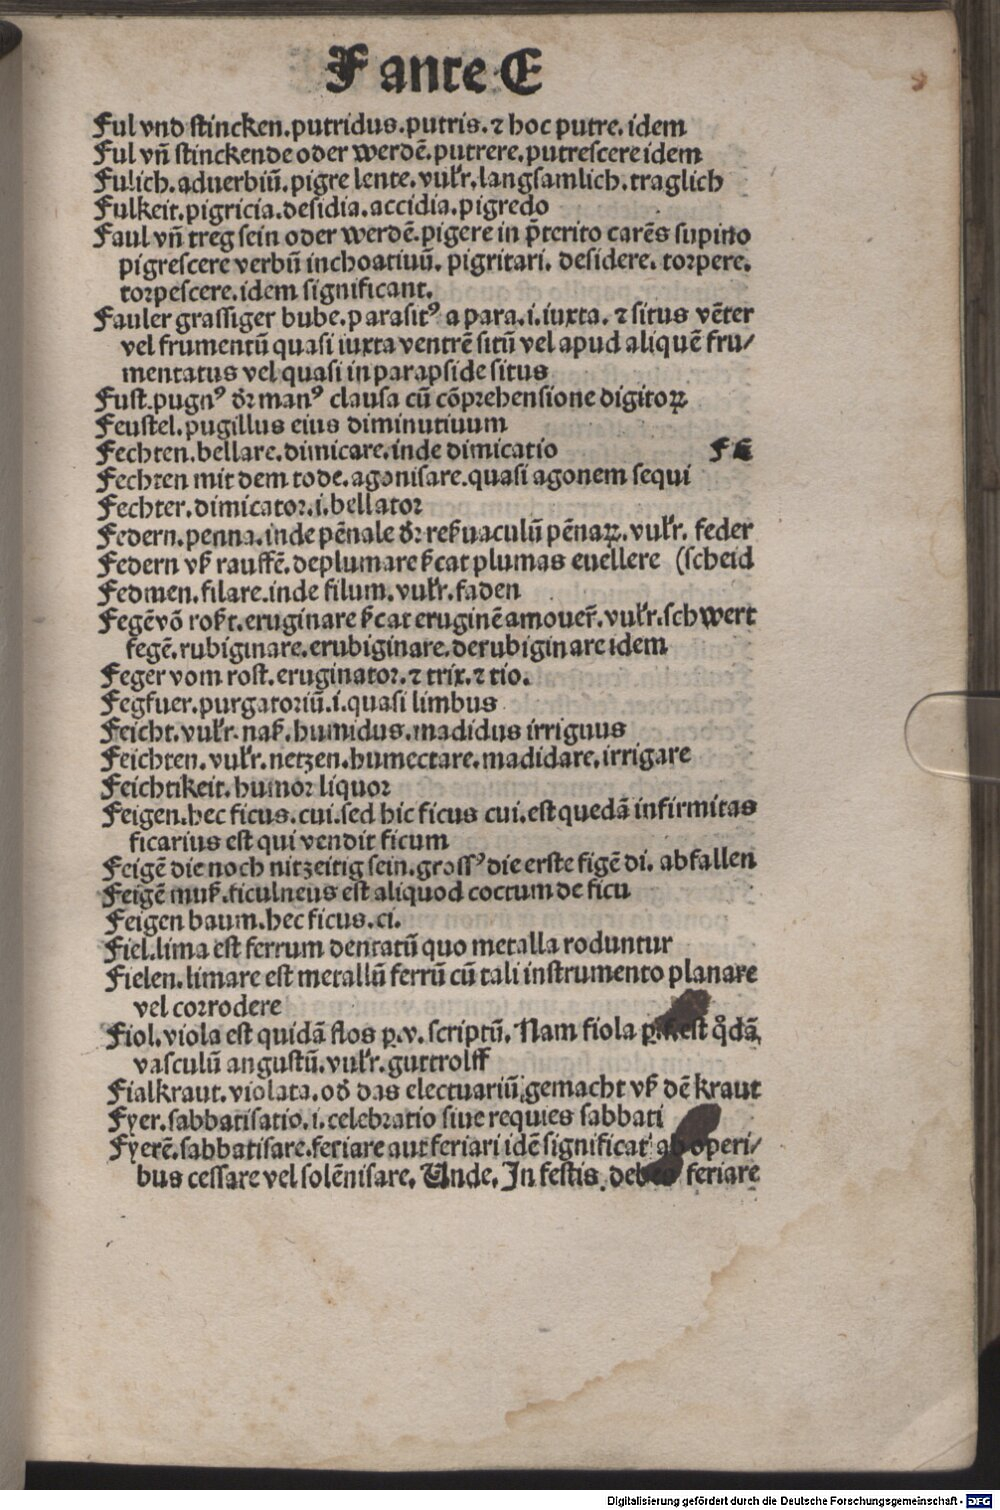 F ante E
Ful vnd stincken.putridus.putris.⁊ hoc putre.idem
Ful vñ stinckende oder werdē.putrere.putrescere idem
Fulich.aduerbiū.pigre lente.vulr̄.langsamlich.traglich
Fulkeit.pigricia.desidia.accidia.pigredo
Faul vñ treg sein oder werdē.pigere in p̄terito carēs supino
pigrescere verbū inchoatiuū.pigritari.desidere.torpere.
torpescere.idem significant.
Fauler grassiger bube.parasitꝰ a para.i.iuxta.⁊ situs vēter
vel frumentū quasi iuxta ventrē sitū vel apud aliquē fru/
mentatus vel quasi in parapside situs
Fust.pugnꝰ dr̄ manꝰ clausa cū cōprehensione digitoꝝ
Feustel.pugillus eius diminutiuum
Fechten.bellare.dimicare.inde dimicatio FE
Fechten mit dem tode.agonisare.quasi agonem sequi
Fechter.dimicator.i.bellator
Federn.penna.inde pēnale dr̄ reꝯuaculū pēnaꝝ.vulr̄.feder
Federn vß rauffē.deplumare ẜcat plumas euellere (scheid
Fedmen.filare.inde filum.vulr̄.faden
Fegē vō roßt.eruginare ẜcat eruginē amouer̄.vulr̄.schwert
fegē.rubiginare.erubiginare.derubiginare idem
Feger vom rost.eruginator.⁊ trix.⁊ tio.
Fegfuer.purgatoriū.i.quasi limbus
Feicht.vulr̄.naß.humidus.madidus irriguus
Feichten.vulr̄.netzen.humectare.madidare.irrigare
Feichtikeit.humor liquor
Feigen.hec ficus.cui.sed hic ficus cui.est quedā infirmitas
ficarius est qui vendit ficum
Feigē die noch nitzeitig sein.grossꝰ die erste figē di.abfallen
Feigē muß.ficulneus est aliquod coctum de ficu
Feigen baum.hec ficus.ci.
Fiel.lima est ferrum dentatū quo metalla roduntur
Fielen.limare est metallū ferrū cū tali instrumento planare
vel corrodere
Fiol.viola est quidā flos ꝑ.v.scriptū.Nam fiola ꝑ.f.est qͦdā
vasculū angustū.vulr̄.guttrolff
Fialkraut.violata.od̄ das electuariū gemacht vß dē kraut
Fyer.sabbatisatio.i.celebratio siue requies sabbati
Fyerē.sabbatisare.feriare aut feriari idē significat ab operi/
bus cessare vel solēnisare.Unde.In festis feriare
Digitalisierung gefördert durch die Deutsche Forschungsgemeinschaft - DFG